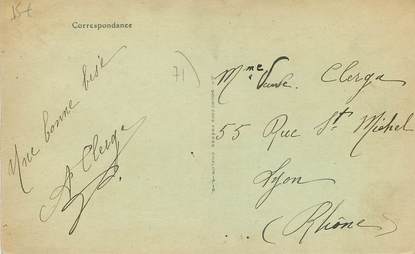 15€
Correspondance
71)
Une bonne bise
A Clerga
Mme Clerga
55 Rue St Michel
Lyon
(Rhône)